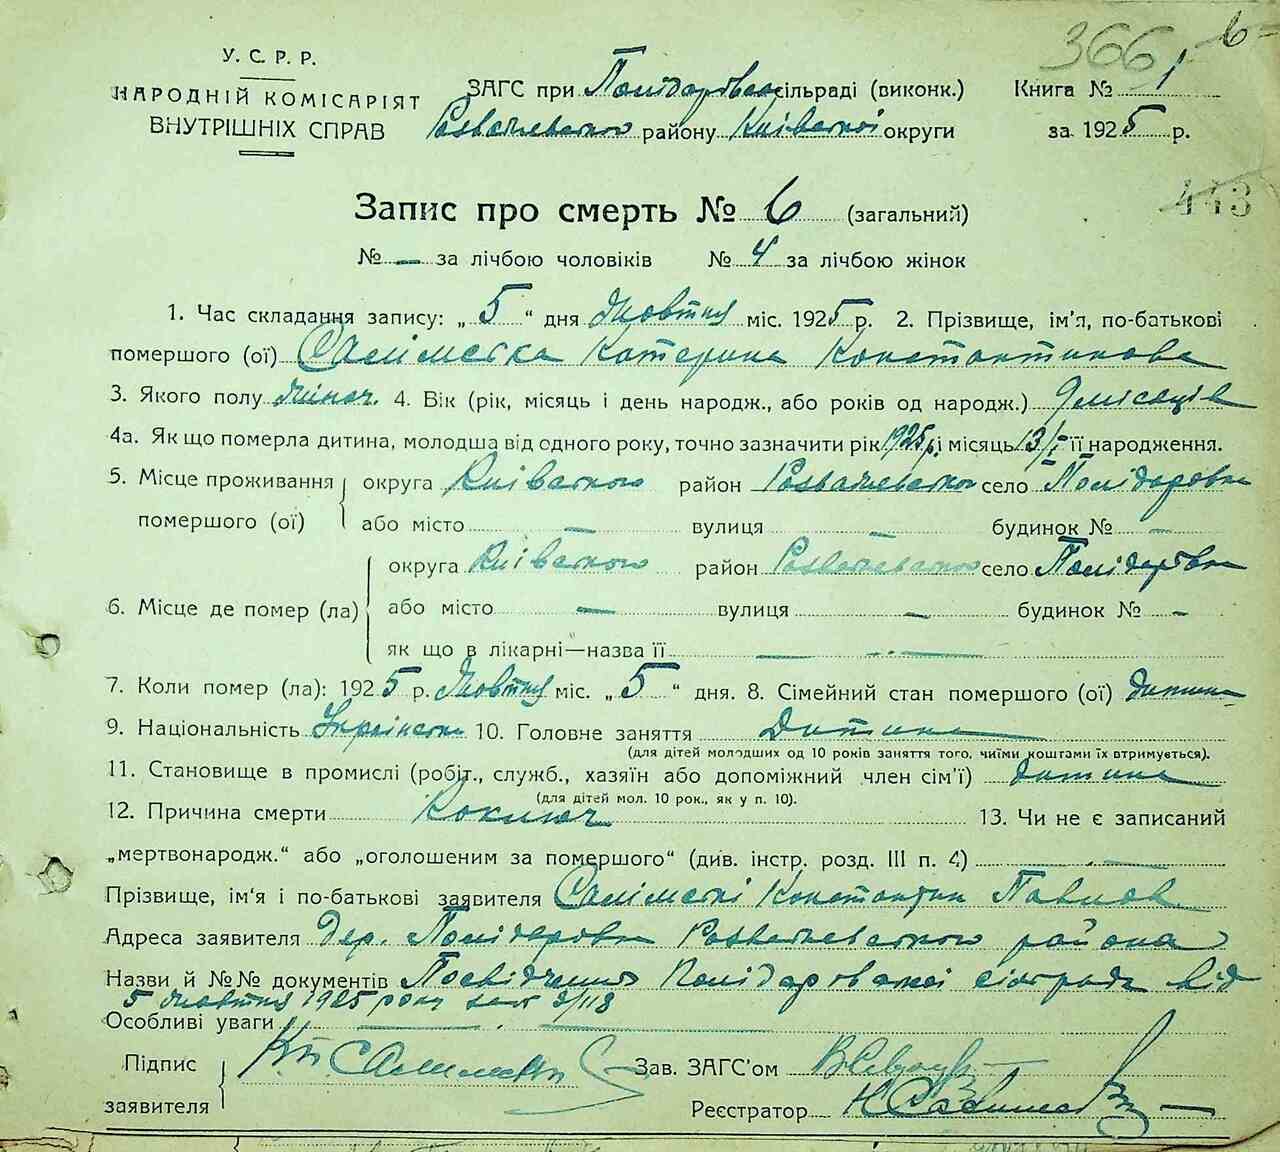 366 6
У. С. Р. Р.
НАРОДНІЙ КОМІСАРІЯТ
ВНУТРІШНІХ СПРАВ
ЗАГС при Полідаровськ. сільраді (виконк.) Книга № 1
Розважевського району Київської округи за 1925 р.
443
Запис про смерть № 6 (загальний)
№ — за лічбою чоловіків № 4 за лічбою жінок
1. Час складання запису: „5“ дня Жовтня міс. 1925 р. 2. Прізвище, ім'я, по-батькові
помершого (ої) Салімська Катерина Константинова
3. Якого полу жіноч. 4. Вік (рік, місяць і день народж., або років од народж.) 9 місяців
4а. Як що померла дитина, молодша від одного року, точно зазначити рік 1925 р. і місяць 13/I її народження.
5. Місце проживання округа Київського район Розважевского село Полідаровка
помершого (ої) або місто — вулиця — будинок № —
округа Київського район Розважевского село Полідаровка
6. Місце де помер (ла) або місто — вулиця — будинок № —
як що в лікарні—назва її —
7. Коли помер (ла): 1925 р. Жовтня міс. „5“ дня. 8. Сімейний стан помершого (ої) дитина
9. Національність Українська 10. Головне заняття Дитина
(для дітей молодших од 10 років заняття того, чиїми коштами їх отримується).
11. Становище в промислі (робіт., служб., хазяїн або допоміжний член сім'ї) дитина
(для дітей мол. 10 рок., як у п. 10).
12. Причина смерти Коключ 13. Чи не є записаний
„мертвонародж.“ або „оголошеним за помершого“ (див. інстр. розд. III п. 4) —
Прізвище, ім'я і по-батькові заявителя Салімскі Константин Павлов
Адреса заявителя Дер. Полідаровка Розважевского района
Назви й №№ документів Посвідчення Полідаровської сільради від
5 жовтня 1925 року за № 2/118
Особливі уваги —
Підпис
заявителя
Зав. ЗАГС'ом
Реєстратор